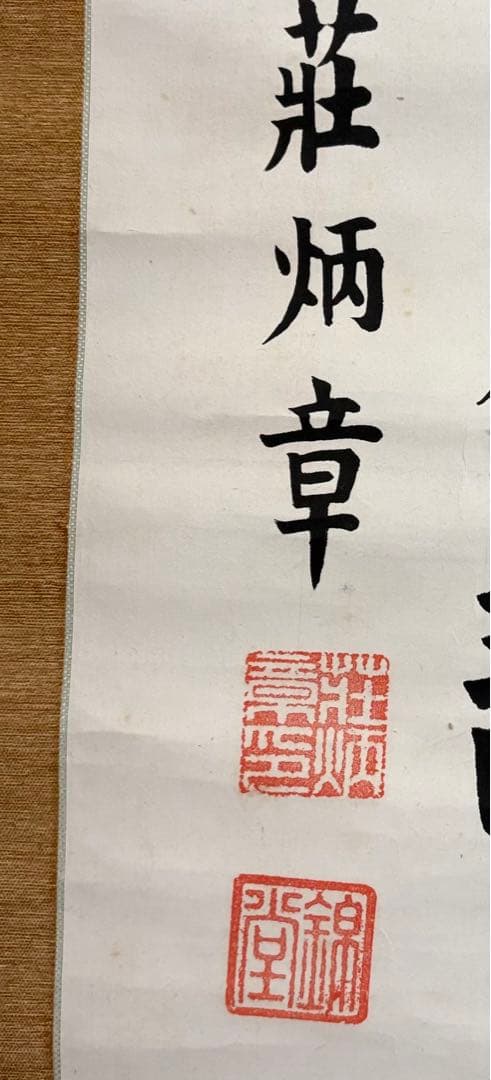 莊炳章
莊炳章印
錦堂